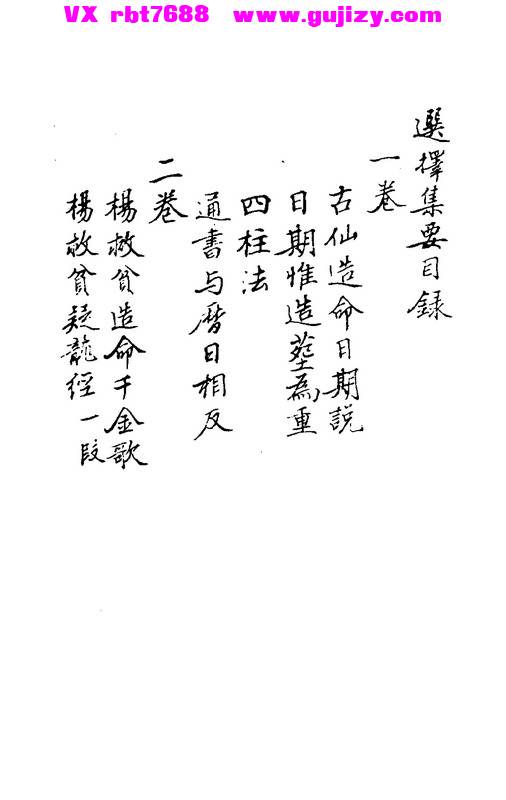 VX rbt7688 www.gujizy.com
選擇集要目録
一卷
古仙造命日期説
日期惟造葬為重
四柱法
通書与厝日相反
二卷
楊救貧造命千金歌
楊救貧疑龍經一段